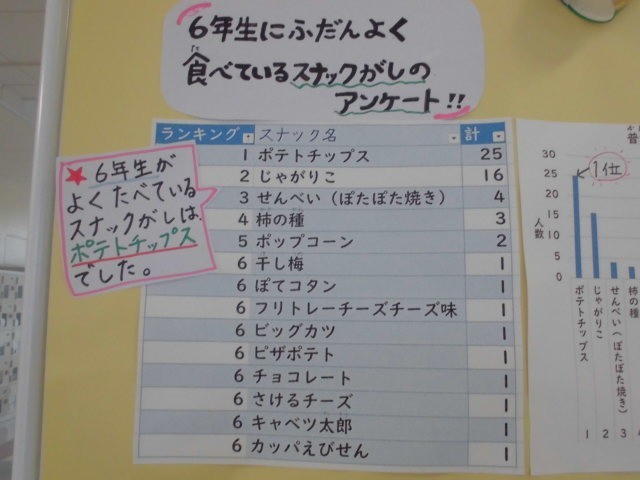 6年生にふだんよく
食べているスナックがしの
アンケート!!
★6年生が
よくたべている
スナックがしは、
ポテトチップス
でした。
ランキング スナック名 計
1 ポテトチップス 25
2 じゃがりこ 16
3 せんべい（ぽたぽた焼き） 4
4 柿の種 3
5 ポップコーン 2
6 干し梅 1
6 ぽてコタン 1
6 フリトレーチーズチーズ味 1
6 ビッグカツ 1
6 ピザポテト 1
6 チョコレート 1
6 さけるチーズ 1
6 キャベツ太郎 1
6 カッパえびせん 1
普
1位
人数
30
25
20
15
10
5
0
ポテトチップス
じゃがりこ
せんべい（ぽたぽた焼き）
柿の種
1 2 3 4